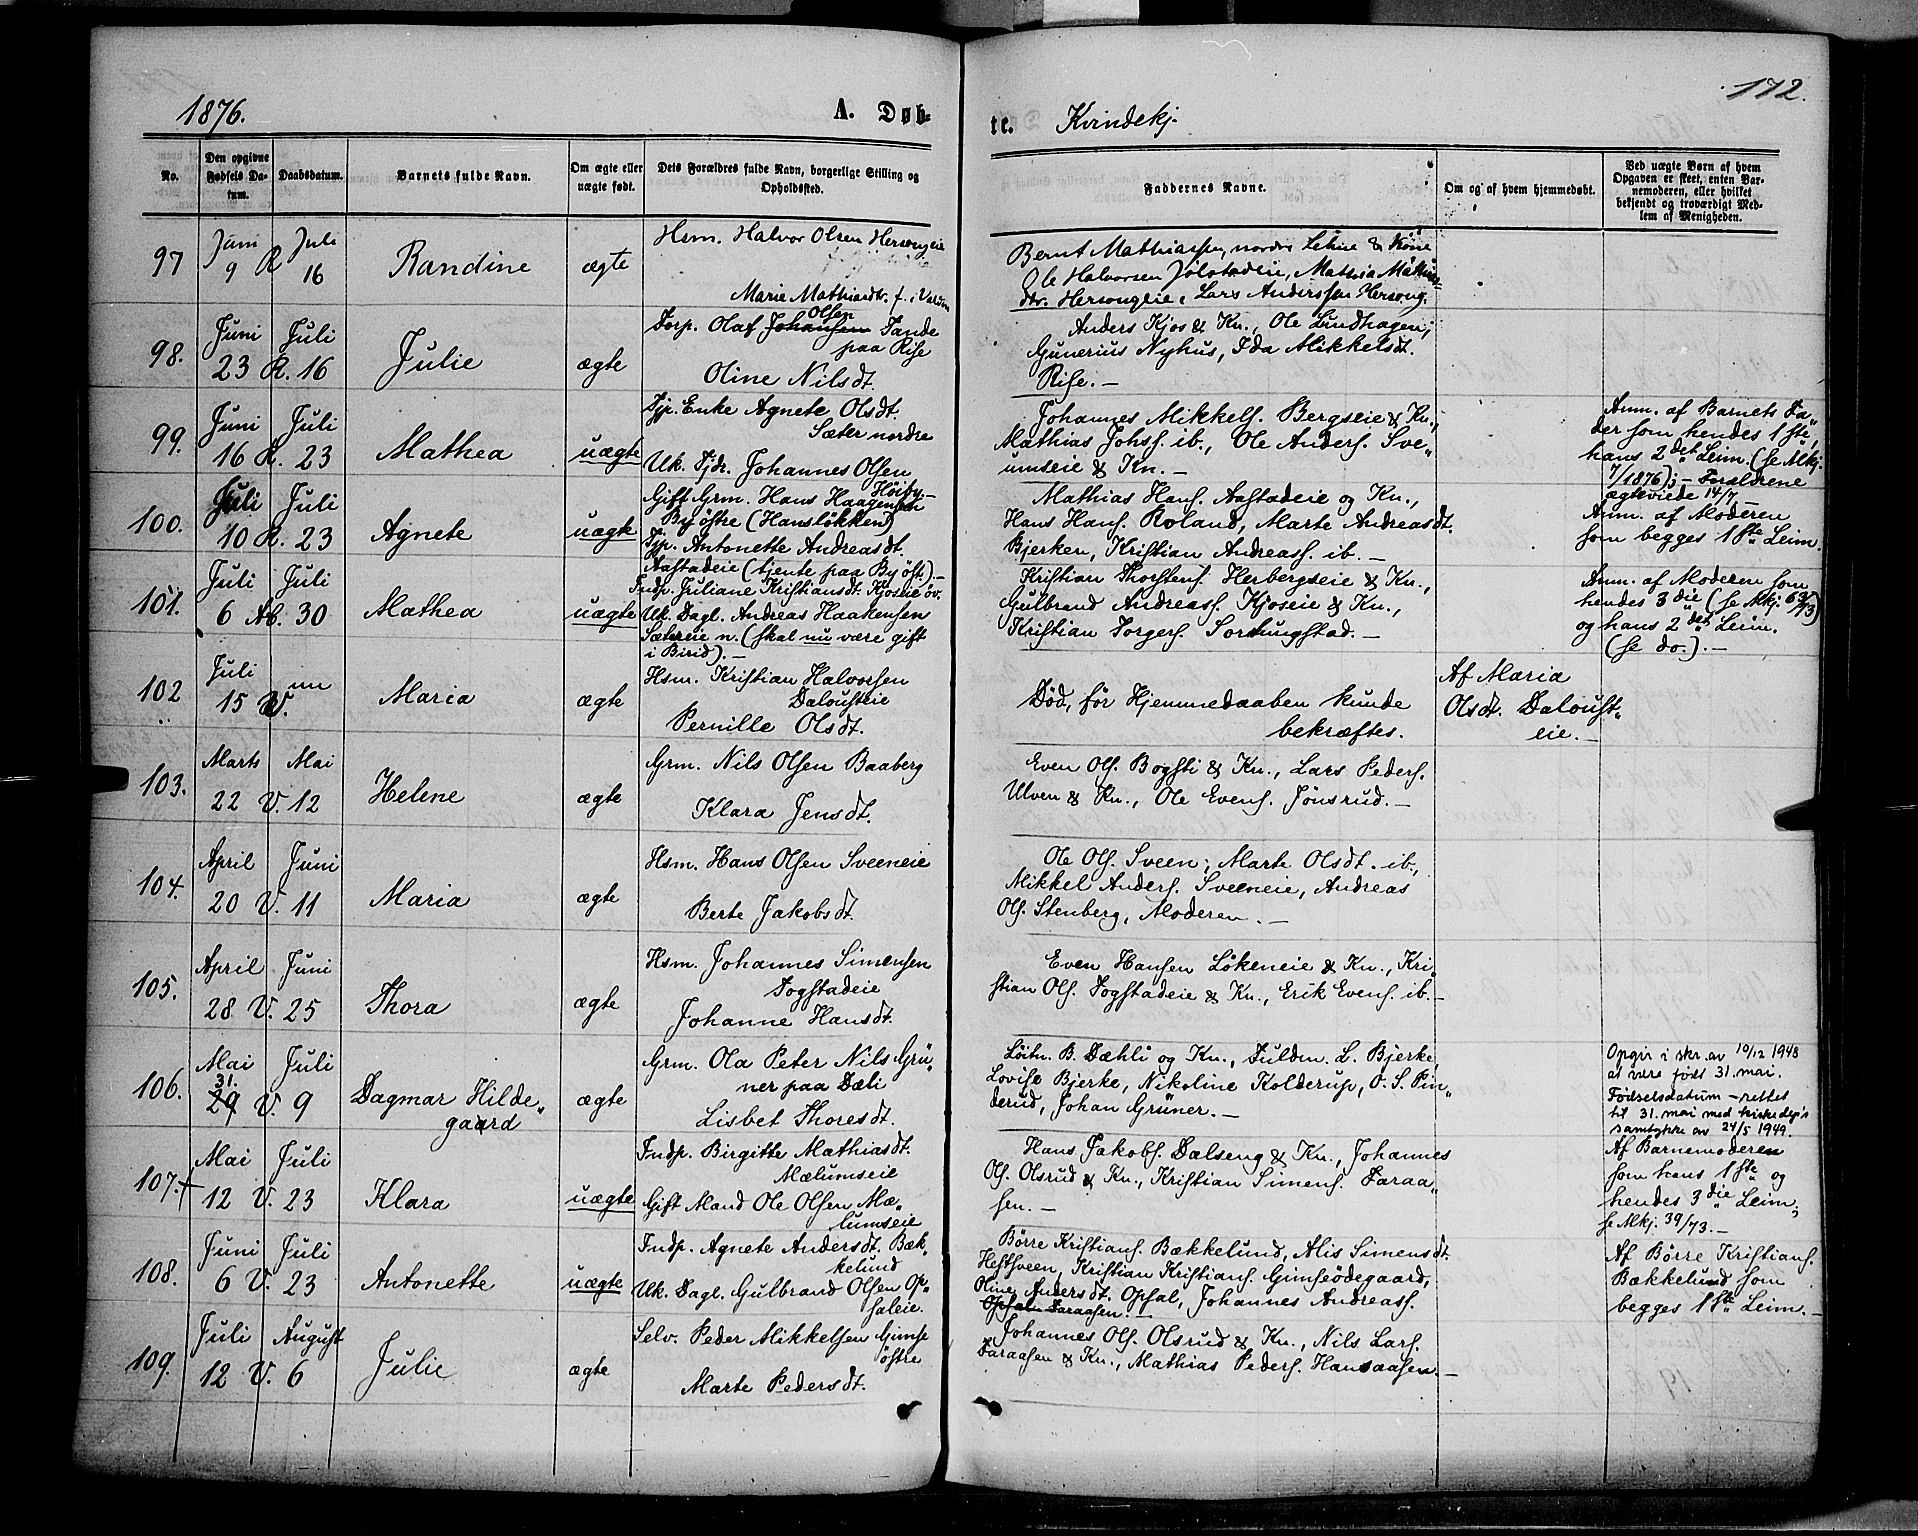 172.
1876.
A. Døb-
te.
Kvindekj.
No.
Den opgivne Fødsels Da-
tum.
Daabsdatum.
Barnets fulde Navn.
Om ægte eller
uægte født.
Dets Forældres fulde Navn, borgerlige Stilling og
Opholdssted.
Faddernes Navne.
Om og af hvem hjemmedøbt.
Ved uægte Børn af hvem
Opgaven er skeet, enten Bar-
nemoderen, eller hvilket
bekjendt og troværdigt Med-
lem af Menigheden.
97
Juni 9 R
Juli 16
Randine
ægte
Hsm. Halvor Olsen Hersougeie
Marie Mathiasdtr.
Bernt Mathiassen, nordre
Ole Halvorsen Jølstadeie, Mathia
dtr. Hersougeie, Lars Anderssen Hersoug.
98.
Juni 23 R.
Juli 16
Julie
ægte
Torp. Olaf Johansen Olsen Tande
paa Rise
Oline Nilsdt.
Anders Kjos & Kn., Ole Lundhagen,
Gunerius Nyhus, Ida Mikkelsdt.
Rise. —
99.
Juni 16 R.
Juli 23
Mathea
uægte
Tjp. Enke Agnete Olsdt.
Sæter nordre
Uk. Tjdr. Johannes Olsen
Johannes Mikkels. Bergseie & Kn.,
Mathias Johs. ib., Ole Anders. Sve„
umseie & Kn. —
Anm. af Barnets Fa„
der som hendes 1ste,
hans 2det Leim. (se Mkj.
7/1876); — Forældrene
ægteviede 14/7 —
100.
Juli 10 R.
Juli 23
Agnete
uægte
Gift Grm. Hans Haagensen Høiby—
By østre (Hansløkken)
Tjp. Antonette Andreasdt.
Aastadeie (tjente paa By øst.). —
Mathias Hans. Aastadeie og Kn.,
Hans Hans. Roland, Marte Andreasdt.
Bjerken, Kristian Andreass. ib. —
Anm. af Moderen
som begges 1ste Leim.
101.
Juli 6 Ab.
Juli 30
Mathea
uægte
Indp. Juliane Kristiansdt. Kjoseie öv.
Uk. Dagl. Andreas Haakensen
Sætereie n. (skal nu være gift
i Birid). —
Kristian Thorstens. Herbergseie & Kn.,
Gulbrand Andreass. Kjoseie & Kn.,
Kristian Torgers. Sorknugstad. —
Anm. af Moderen som
hendes 3die (se Mkj. 63/73)
og hans 2det Leim.
(se do.). —
102
Juli 15 V.
Maria
ægte
Hsm. Kristian Halvorsen
Dalousteie
Pernille Olsdt.
Død, før Hjemmedaaben kunde
bekræftes.
Af Maria
Olsdt. Daloust„
eie. —
103.
Marts 22 V.
Mai 12
Helene
ægte
Grm. Nils Olsen Baaberg
Klara Jensdt.
Even Ols. Bogsti & Kn., Lars Peders.
Ulven & Kn., Ole Evens. Jønsrud. —
104.
April 20 V.
Juni 11
Maria
ægte
Hsm. Hans Olsen Sveeneie
Berte Jakobsdt.
Ole Ols. Sveen; Marte Olsdt. ib.,
Mikkel Anders. Sveeneie, Andreas
Ols. Stenberg, Moderen. —
105.
April 28 V.
Juni 25
Thora
ægte
Hsm. Johannes Simensen
Togstadeie
Johanne Hansdt.
Even Hansen Løkeneie & Kn., Kri„
stian Ols. Togstadeie & Kn., Erik Evens. ib. —
106.
Mai 29 31. V.
Juli 9
Dagmar Hilde„
gaard
ægte
Grm. Ola Peter Nils Grü„
ner paa Dæli
Lisbet Thoresdt.
Løitn. B. Dæhli og Kn., Fuldm. L. Bjerke,
Lovise Bjerke, Nikoline Kolderup, O. S. Pin„
derud, Johan Grüner. —
Opgir i skr. av 10/12 1948
at være født 31. mai.
Fødselsdatum rettet
til 31. mai med kirkedep's
samtykke av 24/5 1949.
107.+
Mai 12 V.
Juli 23
Klara
uægte
Indp. Birgitte Mathiasdt.
Mælumseie
Gift Mand Ole Olsen Mæ„
lumseie
Hans Jakobs. Dalseng & Kn., Johannes
Ols. Olsrud & Kn., Kristian Simens. Faraa„
sen. —
Af Barnemoderen
som hans 1ste og
hendes 3die Leim.,
se Mkj. 39/73. —
108.
Juni 6 V.
Juli 23
Antonette
uægte
Indp. Agnete Andersdt. Bæk„
kelund
Uk. Dagl. Gulbrand Olsen Op„
saleie.
Børre Kristians. Bækkelund, Alis Simensdt.
Hestsveen, Kristian Kristians. Gimseødegaard,
Oline Andersdt. Opsal, Johannes Andreass.
Opsal Faraasen. —
Af Børre Kristians.
Bækkelund som
begges 1ste Leim. —
109.
Juli 12 V.
August 6
Julie
ægte
Selv. Peder Mikkelsen Gimse
østre
Marte Pedersdt.
Johannes Ols. Olsrud & Kn., Nils Lars.
Faraasen & Kn., Mathias Peders. Hansaasen. —